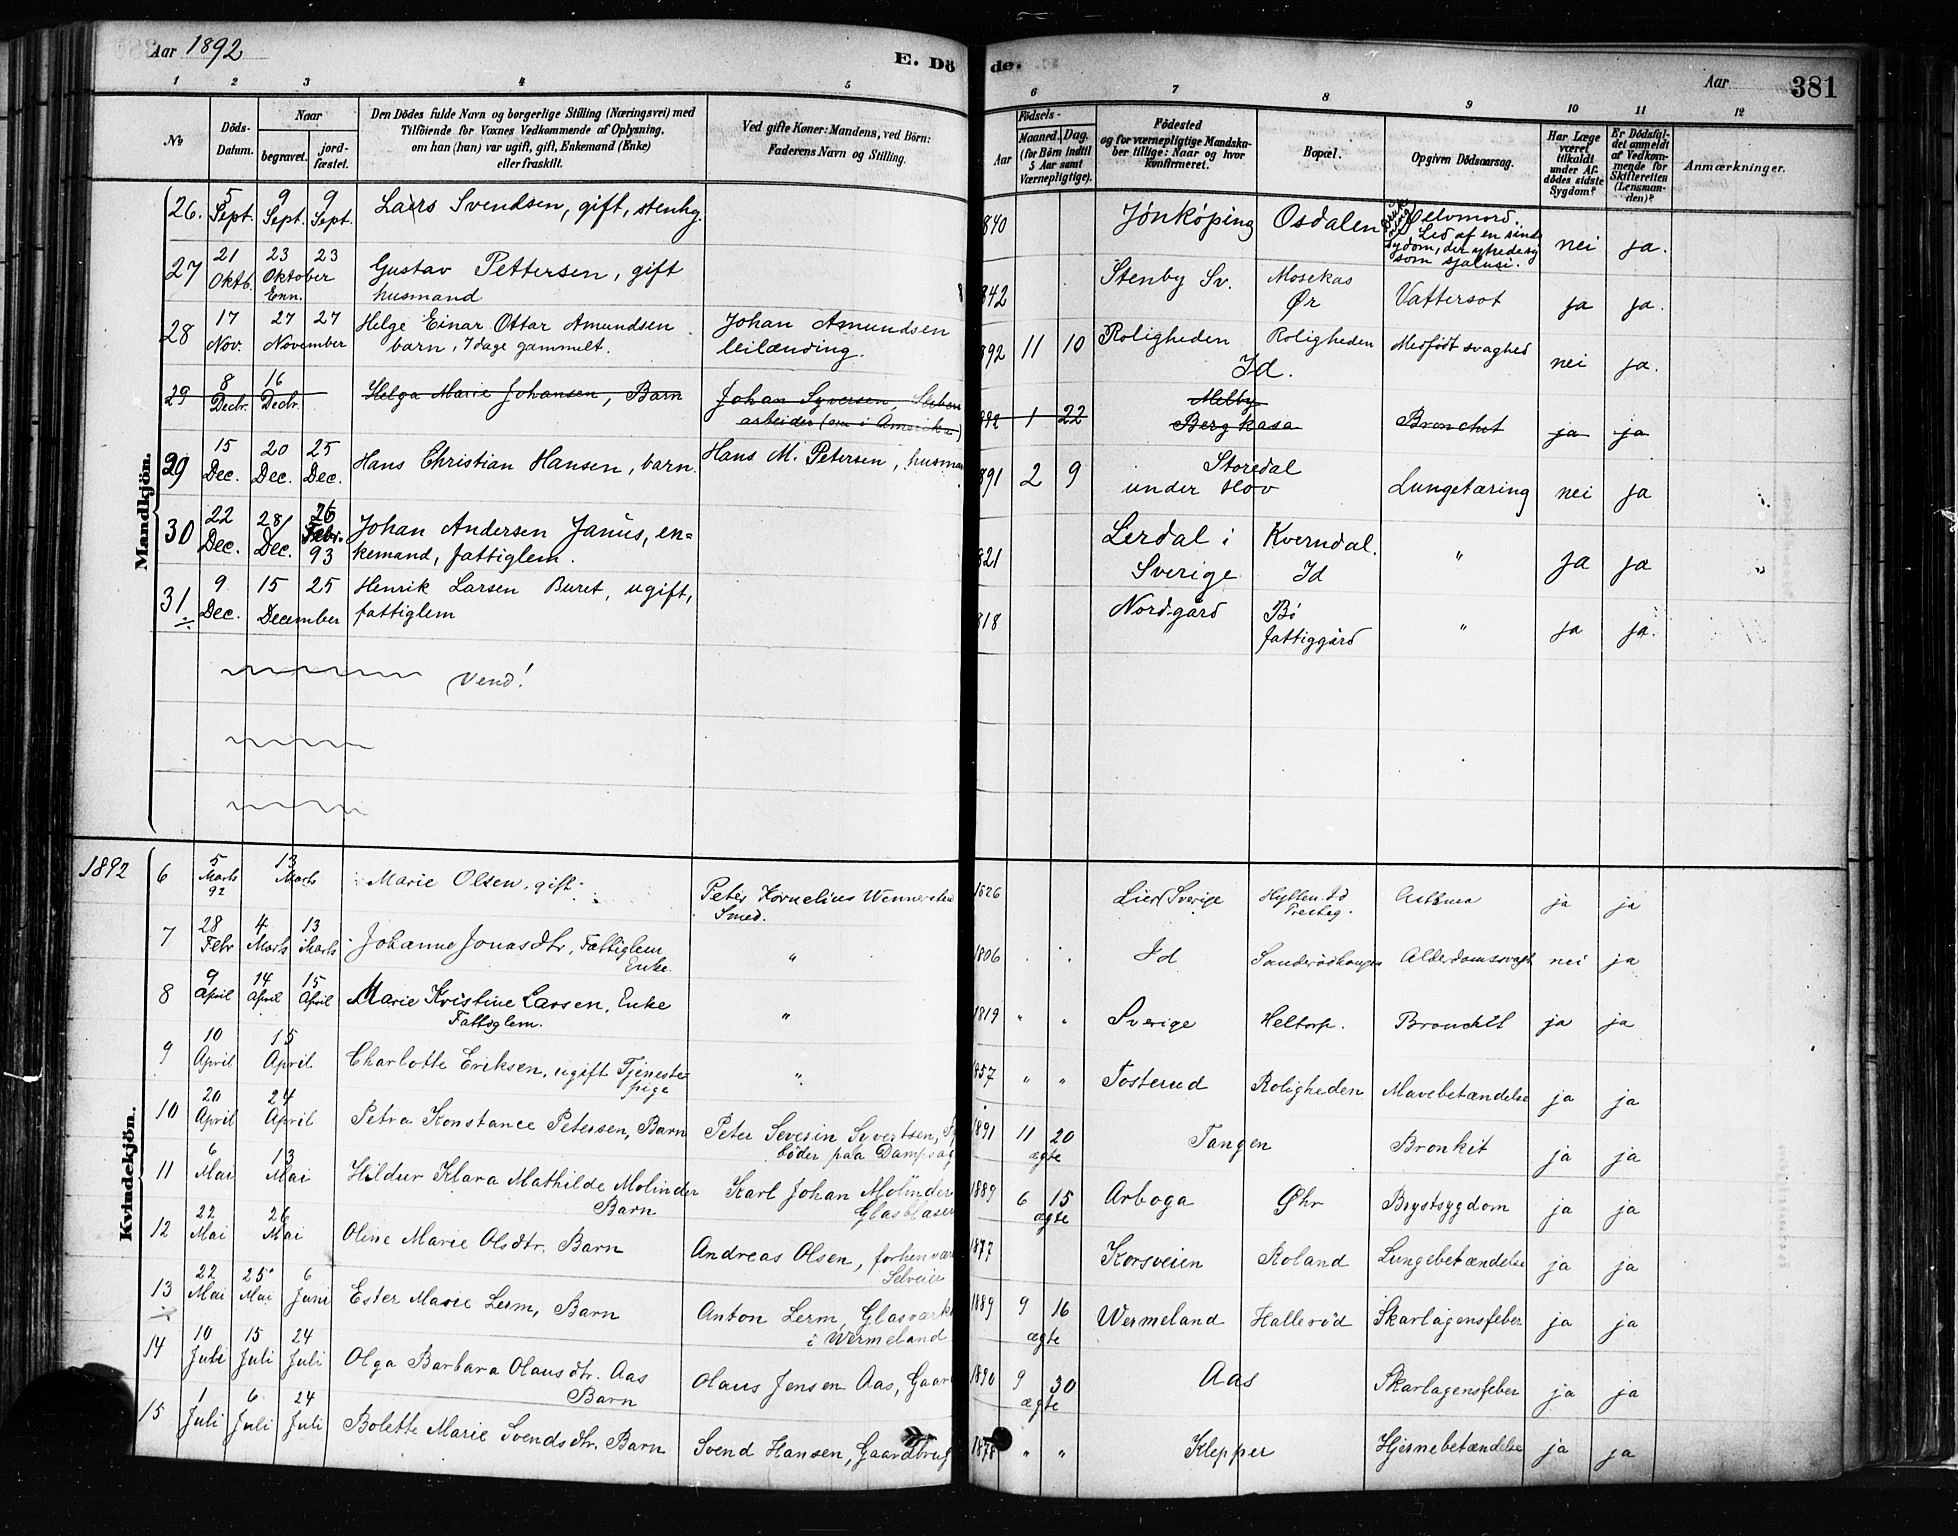 Aar 1892
E. Döde.
Aar 381
1 2 3 4 5 6 7 8 9 10 11 12
№
Döds-Datum.
Naar
begravet.
jordfæstet.
Den Dödes fulde Navn og borgerlige Stilling (Næringsvei) med
Tilföiende for Voxnes Vedkommende af Oplysning,
om han (hun) var ugift, gift, Enkemand (Enke)
eller fraskilt.
Ved gifte Koner: Mandens, ved Börn:
Faderens Navn og Stilling.
Födsels-
Aar
Maaned. Dag.
(for Börn indtil
5 Aar samt
Værnepligtige).
Födested
og for værnepligtige Mandskaber tillige: Naar og hvor
konfirmeret.
Bopæl.
Opgiven Dödsaarsag.
Har Læge
været
tilkaldt
under Afdödes sidste
Sygdom?
Er Dödsfaldet anmeldt
af Vedkommende for
Skifteretten
(Lensmanden)?
Anmærkninger.
Mandkjön.
26. 5 Sept. 9 Sept. 9 Sept. Lars Svendsen, gift, stenhg. 840 Jönköping Osdalen Selvmord.
Led af en sindssygdom, der ytrede sig
som sjalusi. nei ja.
27 21 Oktb. 23 23 Oktober Gustav Pettersen, gift
husmand 842 Stenby Sv. Mosekas
Ør Vattersot ja ja.
28 17 Nov. 27 27 November Helge Einar Ottar Amundsen
barn, 7 dage gammelt. Johan Amundsen
leilænding. 892 11 10 Roligheden Roligheden
Id. Medfödt svaghed nei ja.
29 8 Decbr. 16 Decbr. Helga Marie Johansen, Barn Johan Syversen,
arbeider (nu i Amerika) 892 1 22 Melby
Bergkasa Bronchit ja ja
29 15 Dec. 20 Dec. 25 Dec. Hans Christian Hansen, barn. Hans M. Petersen, husma 891 2 9 Storedal
under Hov Lungetæring nei ja
30 22 Dec. 28/ Dec. 26 Febr. 93 Johan Andersen Janus, enkemand, fattiglem. 821 Lerdal i
Sverige Kverndal.
Id " ja ja "
31 9 Dec. 15 25 December Henrik Larsen Buret, ugift,
fattiglem 818 Nordgård Bö
fattiggård " ja ja.
Vend!
1892
Kvindekjön.
6 5 Marts 92 13 Marts Marie Olsen, gift Peter Kornelius
Smed. 1826 Lier Sverige Hytten Id Astma ja ja
7 28 Febr 4 Marts 13 Marts Johanne Jonasdtr, Fattiglem
Enke " 1806 Id Alderdomssvagh nei ja
8 9 April 14 April 15 April Marie Kristine Larsen, Enke
Fattiglem. " 1819 " " Sverige Heltorp. Bronchit ja ja
9 10 April 15 April Charlotte Eriksen, ugift Tjenestepige " 857 " " Tosterud Roligheden Mavebetændelse ja ja
10 20 April 24 April Petra Konstance Petersen, Barn Peter Severin Syvertsen,
böder paa Dampsag 1891 11 20
ægte Tangen Bronkit ja ja
11 6 Mai 13 Mai Hildur Klara Mathilde Molinder
Barn Karl Johan Molinder
Glasblaser 1889 6 15
ægte Arboga Øhr Brystsygdom ja ja
12 22 Mai 26 Mai Oline Marie Olsdtr. Barn Andreas Olsen, forhenvær
Selveier 1877 Korsveien Roland Lungebetændelse ja ja
13 22 Mai 25 Mai 6 Juni Ester Marie Lerm, Barn Anton Lerm, Glasværk
i Wermeland 1889 9 16
ægte Wermeland Halleröd Skarlagensfeber ja ja
14 10 Juli 15 Juli 24 Juli Olga Barbara Olausdtr. Aas
Barn Olaus Jensen Aas, Gaar 1890 9 30
ægte Aas Skarlagensfeber ja ja
15 1 Juli 6 Juli 24 Juli Bolette Marie Svendsdtr. Barn Svend Hansen, Gaardbrug 1878 " " Klepper Hjernebetændelse ja ja